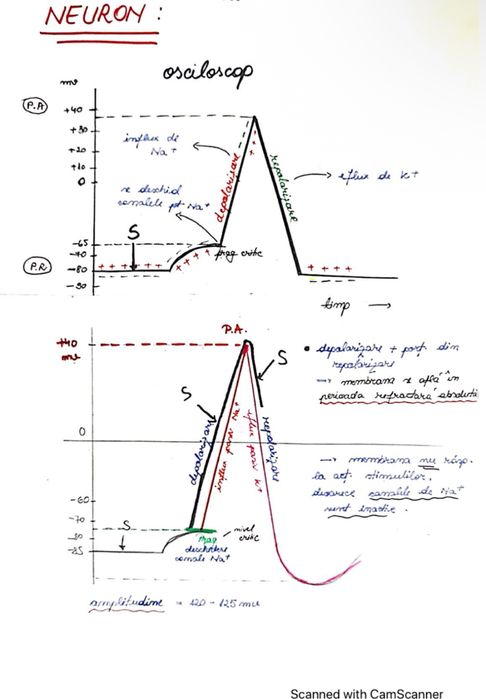 NEURON :
osciloscop
mv
P.A
+40
+30
+20
+10
0
influx de
Na+
depolarizare
repolarizare
eflux de K+
se deschid
canalele pt Na+
S
-65
-70
-80
-90
prag critic
P.R
timp →
P.A.
+40
mv
S
S
• depolarizare + porț. din
repolarizare
→ membrana se află în
perioada refractară absolută
depolarizare
influx pasiv Na+
eflux pasiv K+
repolarizare
0
→ membrana nu răsp.
la acț. stimulilor,
deoarece canalele de Na+
sunt inactive.
-60
-70
-80
-85
S
nivel
critic
Prag
deschidere
canale Na+
amplitudine = 120 - 125 mv
Scanned with CamScanner